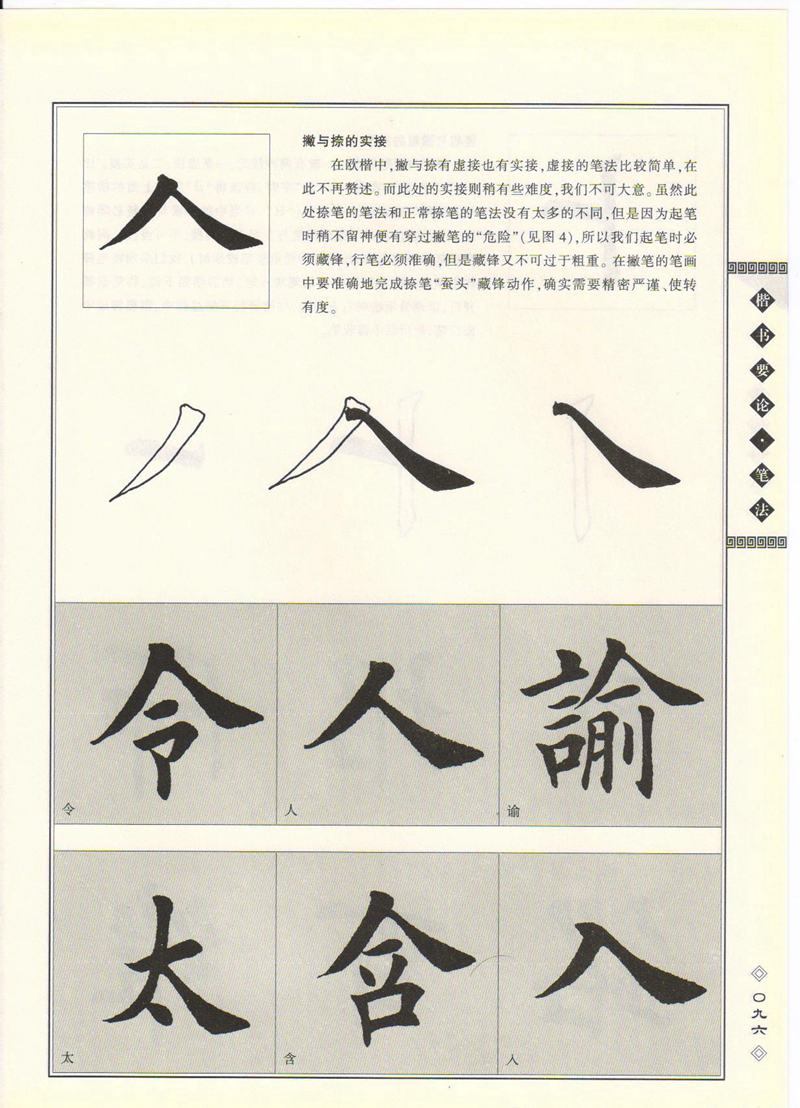 撇与捺的实接
在欧楷中,撇与捺有虚接也有实接,虚接的笔法比较简单,在
此不再赘述。而此处的实接则稍有些难度,我们不可大意。虽然此
处捺笔的笔法和正常捺笔的笔法没有太多的不同,但是因为起笔
时稍不留神便有穿过撇笔的“危险”(见图4),所以我们起笔时必
须藏锋,行笔必须准确,但是藏锋又不可过于粗重。在撇笔的笔画
中要准确地完成捺笔“蚕头”藏锋动作,确实需要精密严谨、使转
有度。
人
人
楷书要论·笔法
令 人 諭
令 人 谕
太 含 入
太 含 入
〇九六